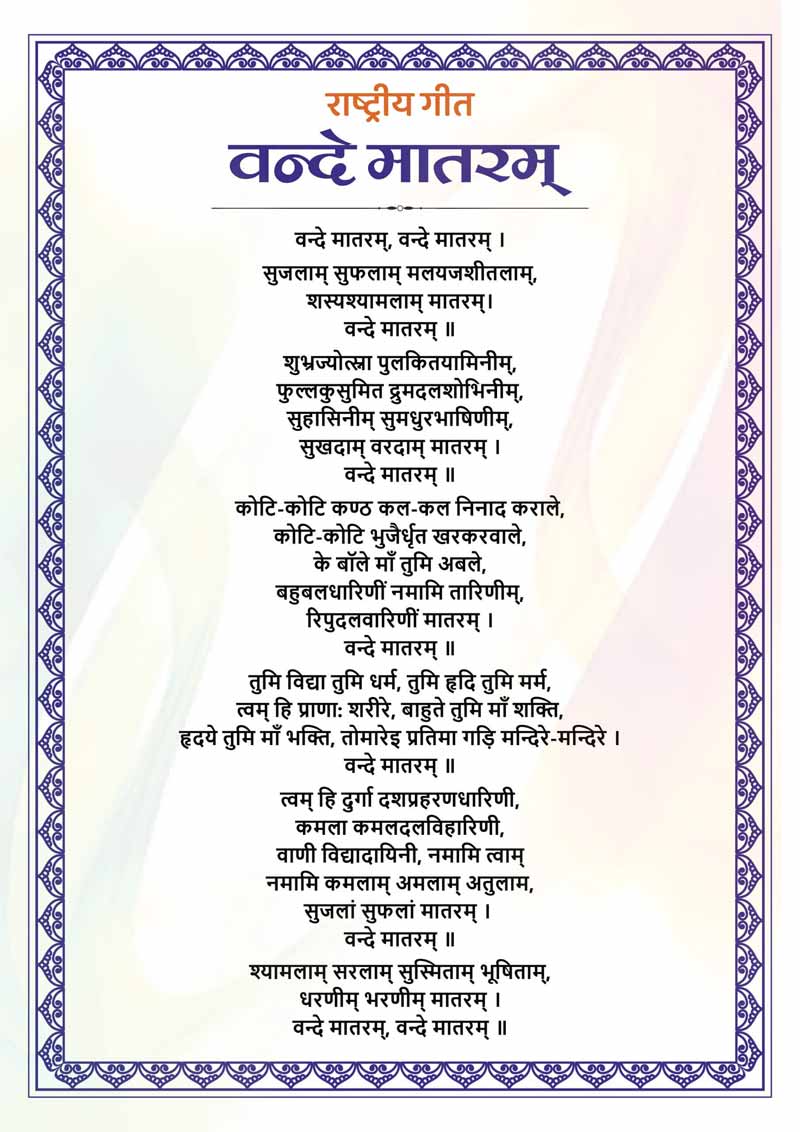 राष्ट्रीय गीत
वन्दे मातरम्
वन्दे मातरम्, वन्दे मातरम् ।
सुजलाम् सुफलाम् मलयजशीतलाम्,
शस्यश्यामलाम् मातरम्।
वन्दे मातरम् ॥
शुभ्रज्योत्स्ना पुलकितयामिनीम्,
फुल्लकुसुमित द्रुमदलशोभिनीम्,
सुहासिनीम् सुमधुरभाषिणीम्,
सुखदाम् वरदाम् मातरम् ।
वन्दे मातरम् ॥
कोटि-कोटि कण्ठ कल-कल निनाद कराले,
कोटि-कोटि भुजैर्धृत खरकरवाले,
के बॉले माँ तुमि अबले,
बहुबलधारिणीं नमामि तारिणीम्,
रिपुदलवारिणीं मातरम् ।
वन्दे मातरम् ॥
तुमि विद्या तुमि धर्म, तुमि हृदि तुमि मर्म,
त्वम् हि प्राणाः शरीरे, बाहुते तुमि माँ शक्ति,
हृदये तुमि माँ भक्ति, तोमारेइ प्रतिमा गड़ि मन्दिरे-मन्दिरे ।
वन्दे मातरम् ॥
त्वम् हि दुर्गा दशप्रहरणधारिणी,
कमला कमलदलविहारिणी,
वाणी विद्यादायिनी, नमामि त्वाम्
नमामि कमलाम् अमलाम् अतुलाम,
सुजलां सुफलां मातरम् ।
वन्दे मातरम् ॥
श्यामलाम् सरलाम् सुस्मिताम् भूषिताम्,
धरणीम् भरणीम् मातरम् ।
वन्दे मातरम्, वन्दे मातरम् ॥